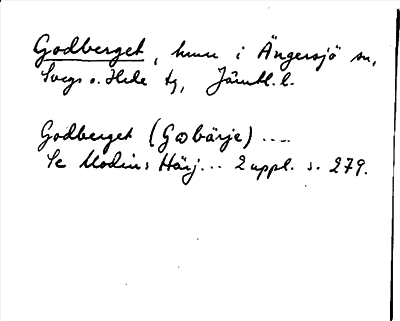 Godberget, hmn i Ängersjö sn,
Svegs o. Hede tg, Jämtl. l.
Godberget (Gωbärje) ....
Se Modin: Härj... 2 uppl. s. 279.